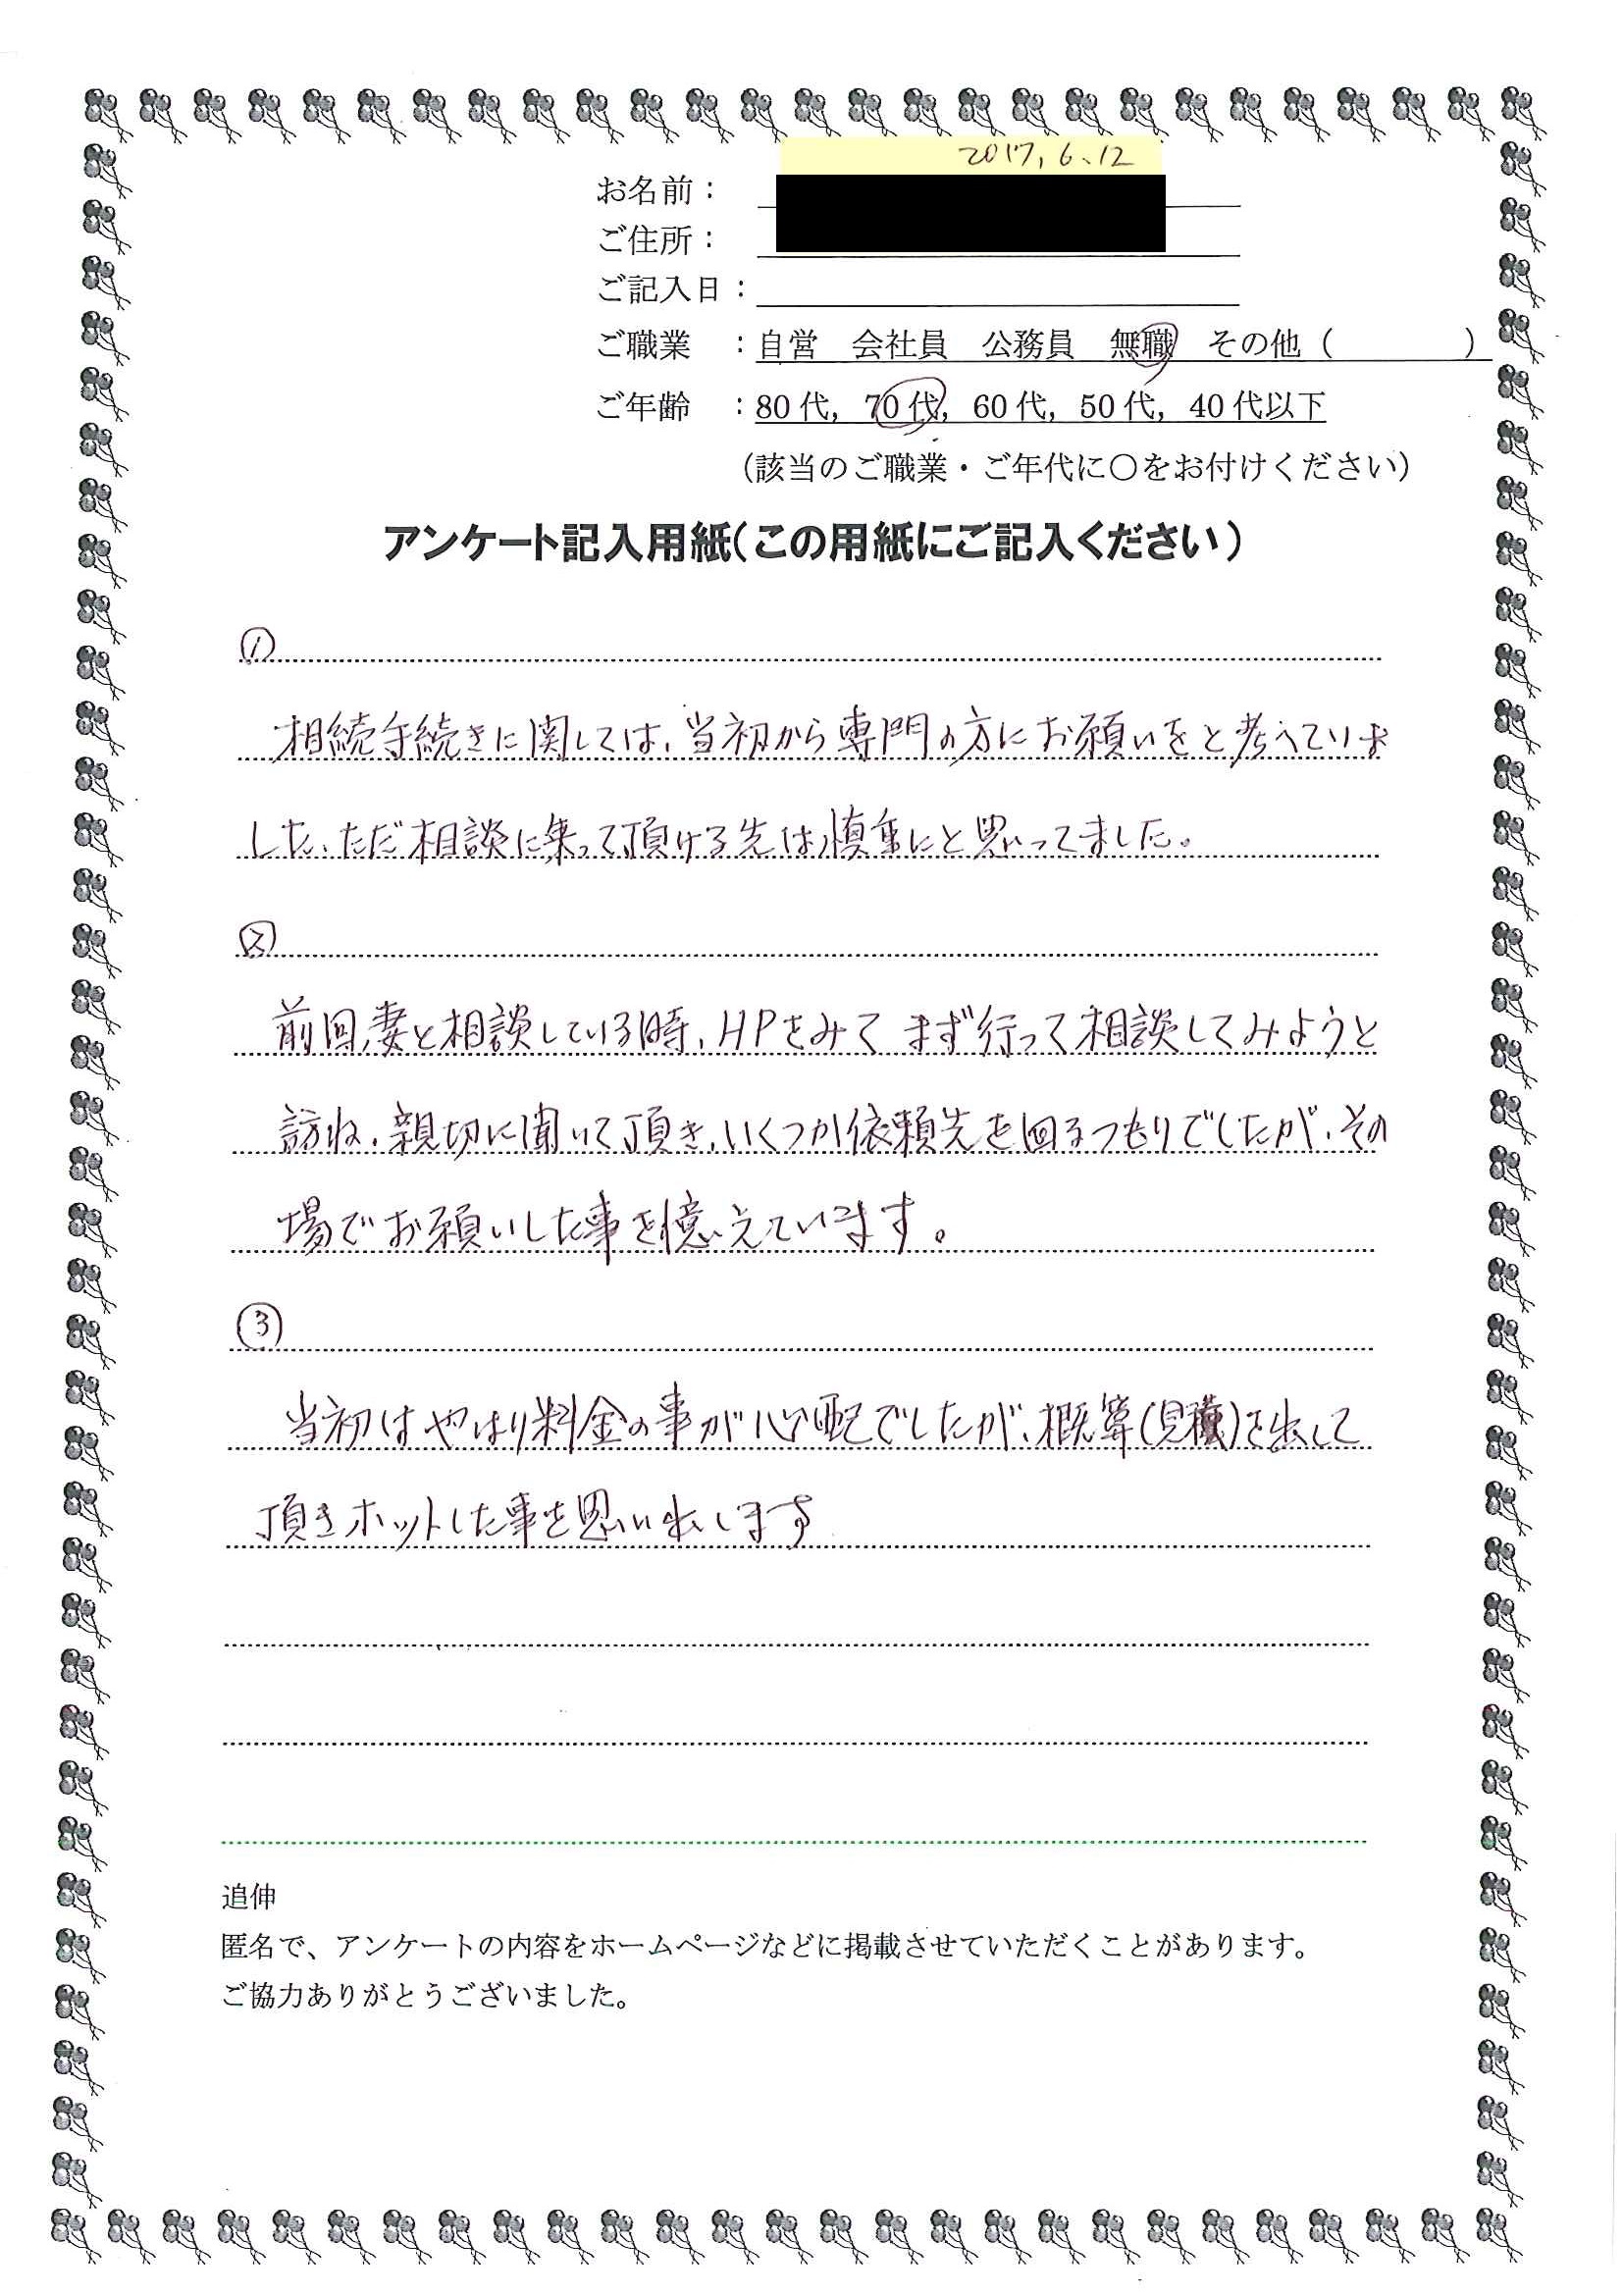 2017, 6、12
お名前：
ご住所：
ご記入日：
ご職業　：自営　会社員　公務員　無職　その他（　　　　）
ご年齢　：80代，70代，60代，50代，40代以下
（該当のご職業・ご年代に〇をお付けください）
アンケート記入用紙（この用紙にご記入ください）
①
相続手続きに関しては、当初から専門の方にお願いをと考えていま
した、ただ相談に乗って頂ける先は慎重にと思ってました。
②
前回、妻と相談している時、HPをみて まず行って相談してみようと
訪ね、親切に聞いて頂き、いくつか依頼先を回るつもりでしたが、その
場でお願いした事を憶えています。
③
当初はやはり料金の事が心配でしたが、概算(見積)を出して
頂きホットした事を思い出します
追伸
匿名で、アンケートの内容をホームページなどに掲載させていただくことがあります。
ご協力ありがとうございました。